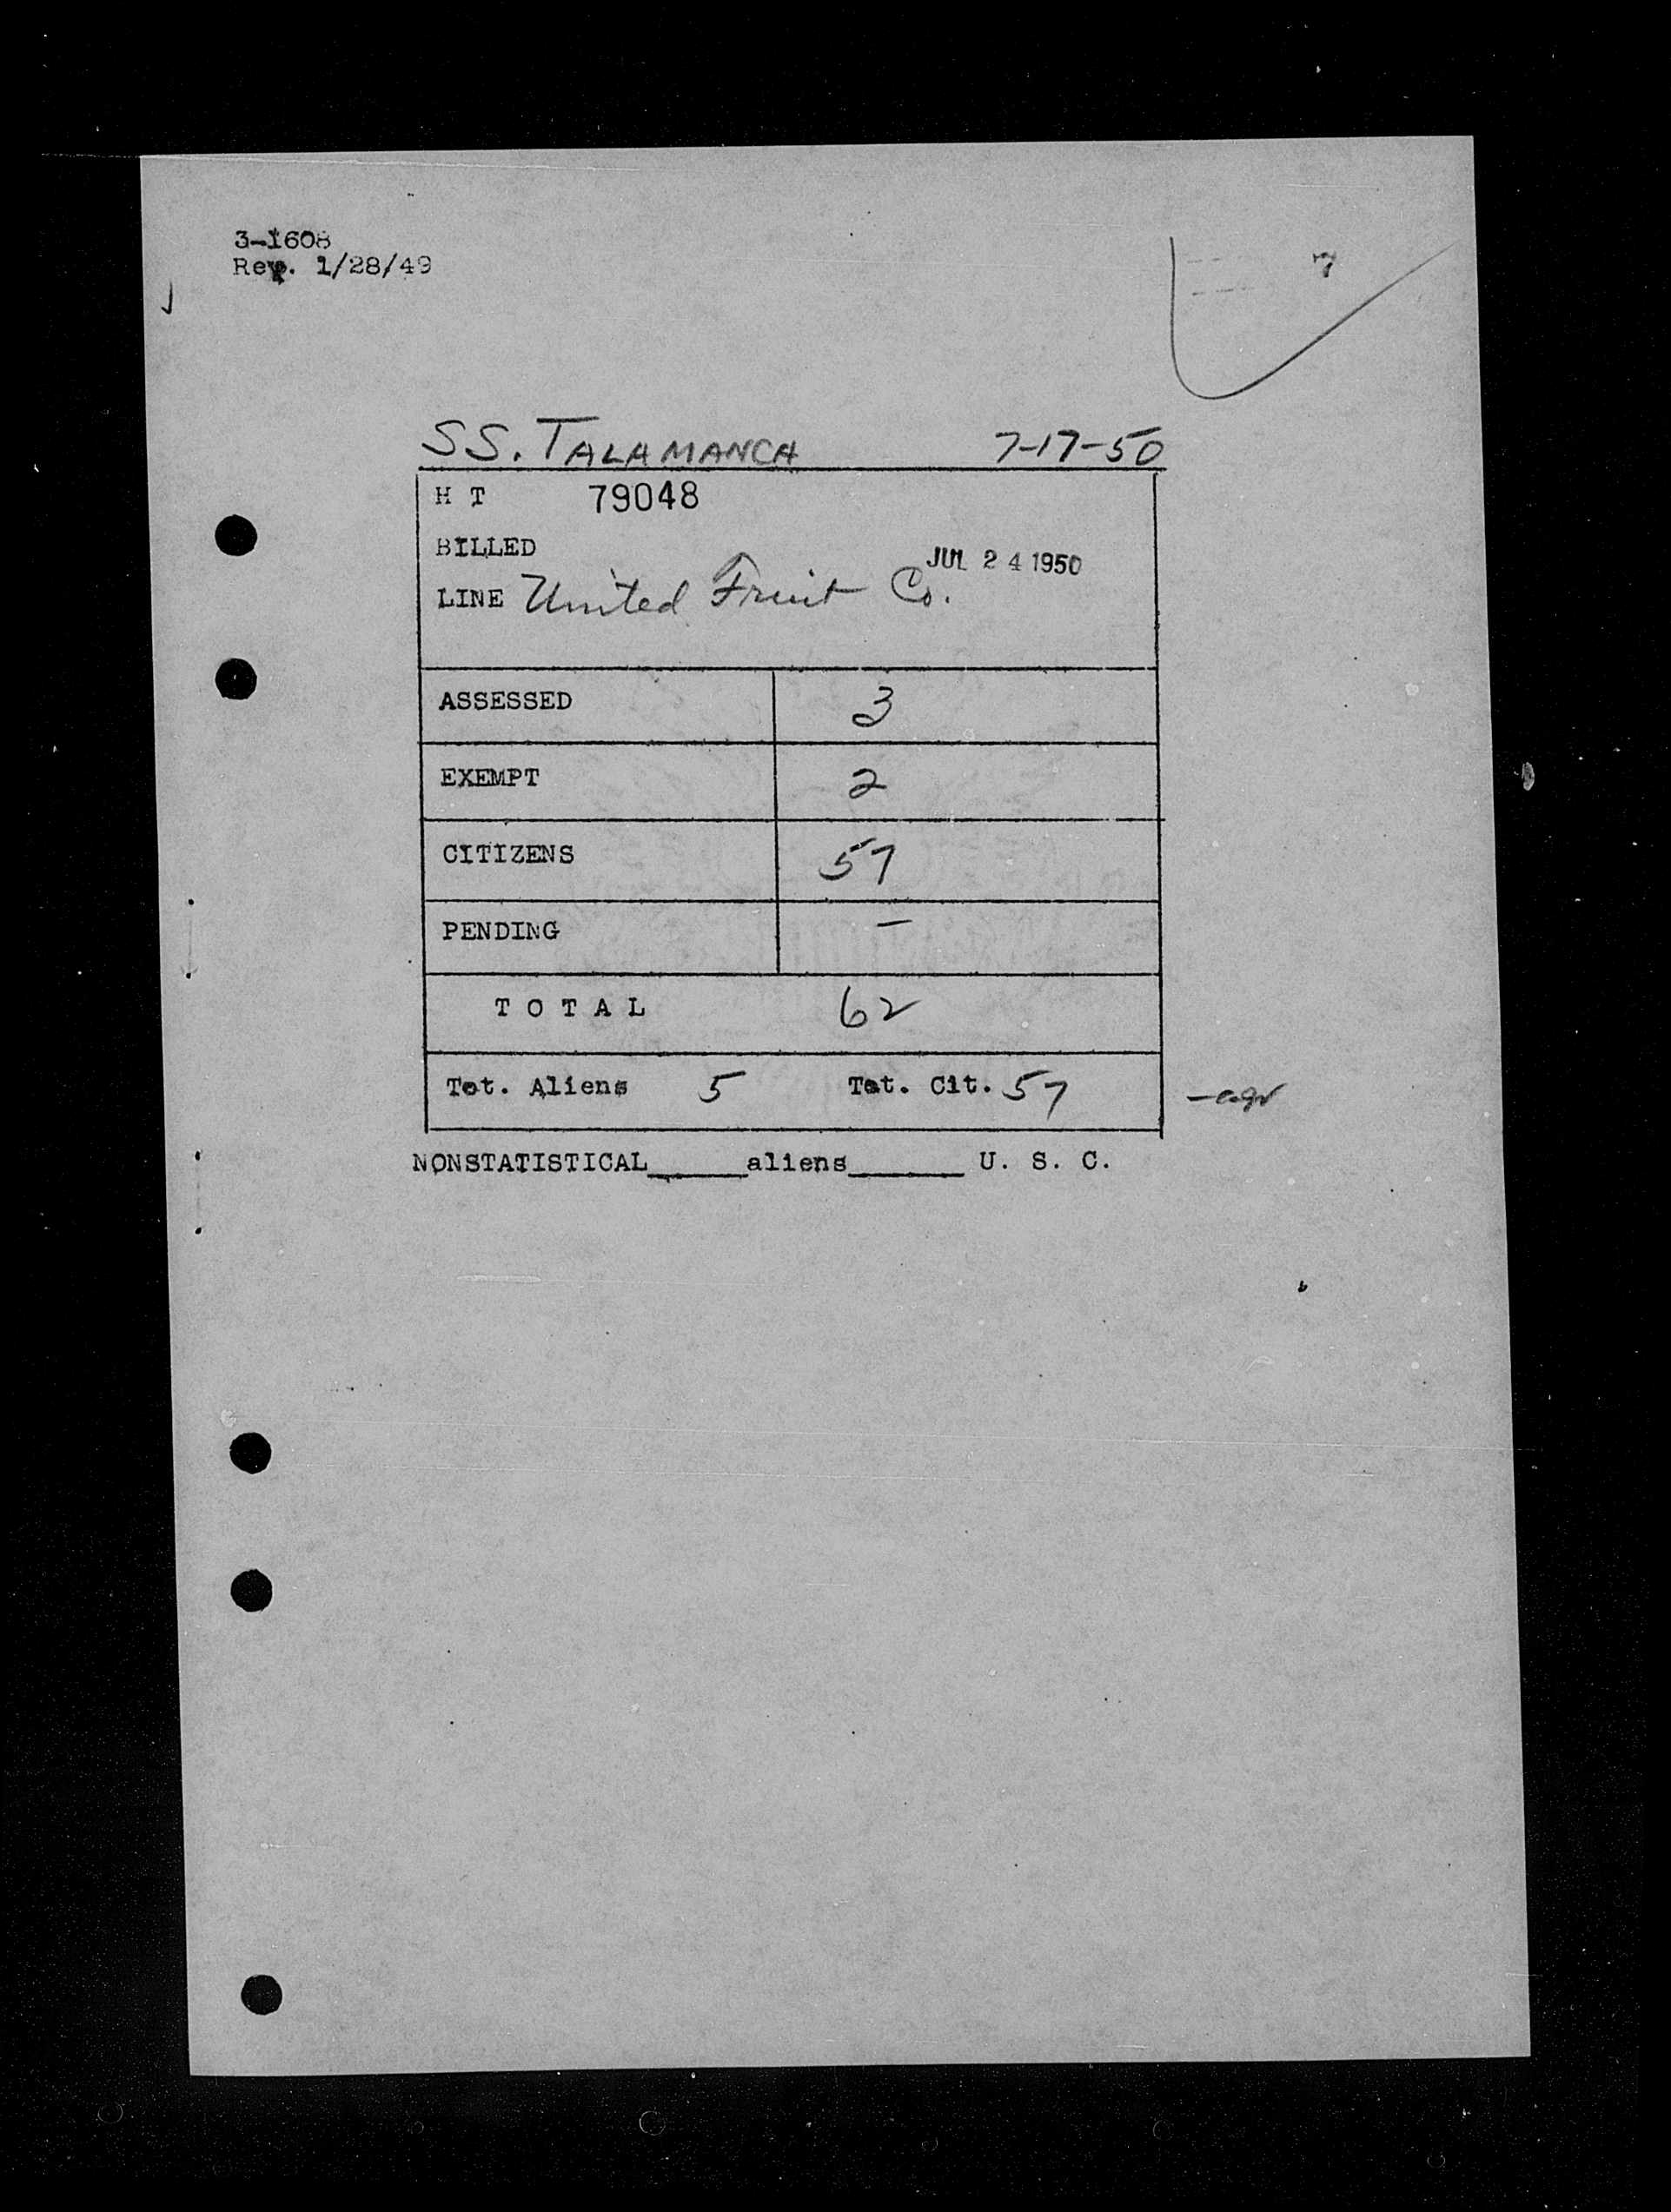 3-1608
Rev. 1/28/49
7
SS. TALAMANCA 7-17-50
H T 79048
BILLED
JUL 24 1950
LINE United Fruit Co.
ASSESSED 3
EXEMPT 2
CITIZENS 57
PENDING –
TOTAL 62
Tot. Aliens 5 Tot. Cit. 57
NONSTATISTICAL______aliens_______ U. S. C.